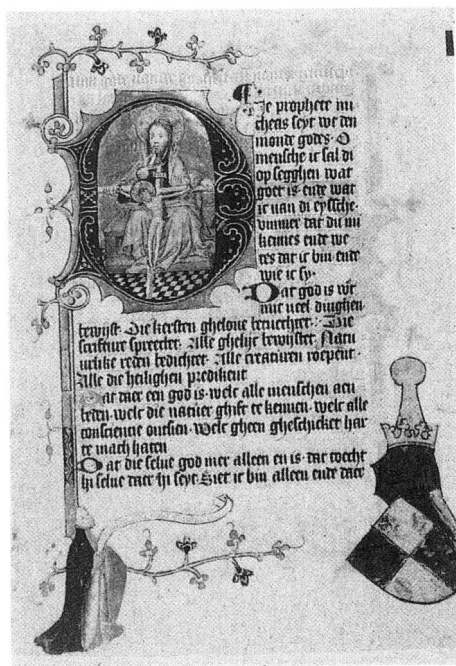 Die prophete mi
cheas seyt wt den
monde godes. O
mensche ic sal di
op segghen wat
goet is ende wat
ic van di eyssche.
ümmer dat du mi
kennes ende we
tes dat ic bin ende
wie ic sy.
Dat god is wt
mit veel dinghen
bewijst. Die kersten gheloue
scrifture spreectet. Alle ghelijc bewijstet. Natu
erlike reden bedichtet. Alle creaturen roepent.
Alle die heilighen predikent
Dat daer een god is. welc alle menschen aen
beden. welc die natuer ghift te kennen. welc alle
consciencie ontsien. Welc gheen gheschicket har
te mach haten
Dat die selue god mer alleen en is. dat
hi selue daer hi seyt Siet ic bin alleen ende daer